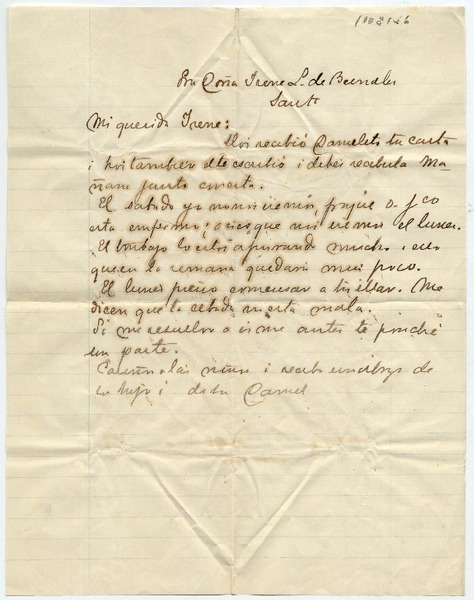 Sra Doña Irene L. de Bernales
Mi querida Irene:
Hoi recibió Danielito tu carta
i hoi tambien él te escribió i debes recibirla Ma
ñana junto con esta.
El sabado ya no nos iremos, porque
esta enfermo; asies que nos iremos el lunes.
El trabajo lo estoi apurando mucho i creo
que en la semana quedará mui poco.
El lunes pienso comensar a trillar. Me
dicen que la cebada no esta mala.
Si me resuelvo a irme antes te pondré
un parte.
Cariños a las niñas i recibe un abrazo de
tu hijo i de tu Daniel